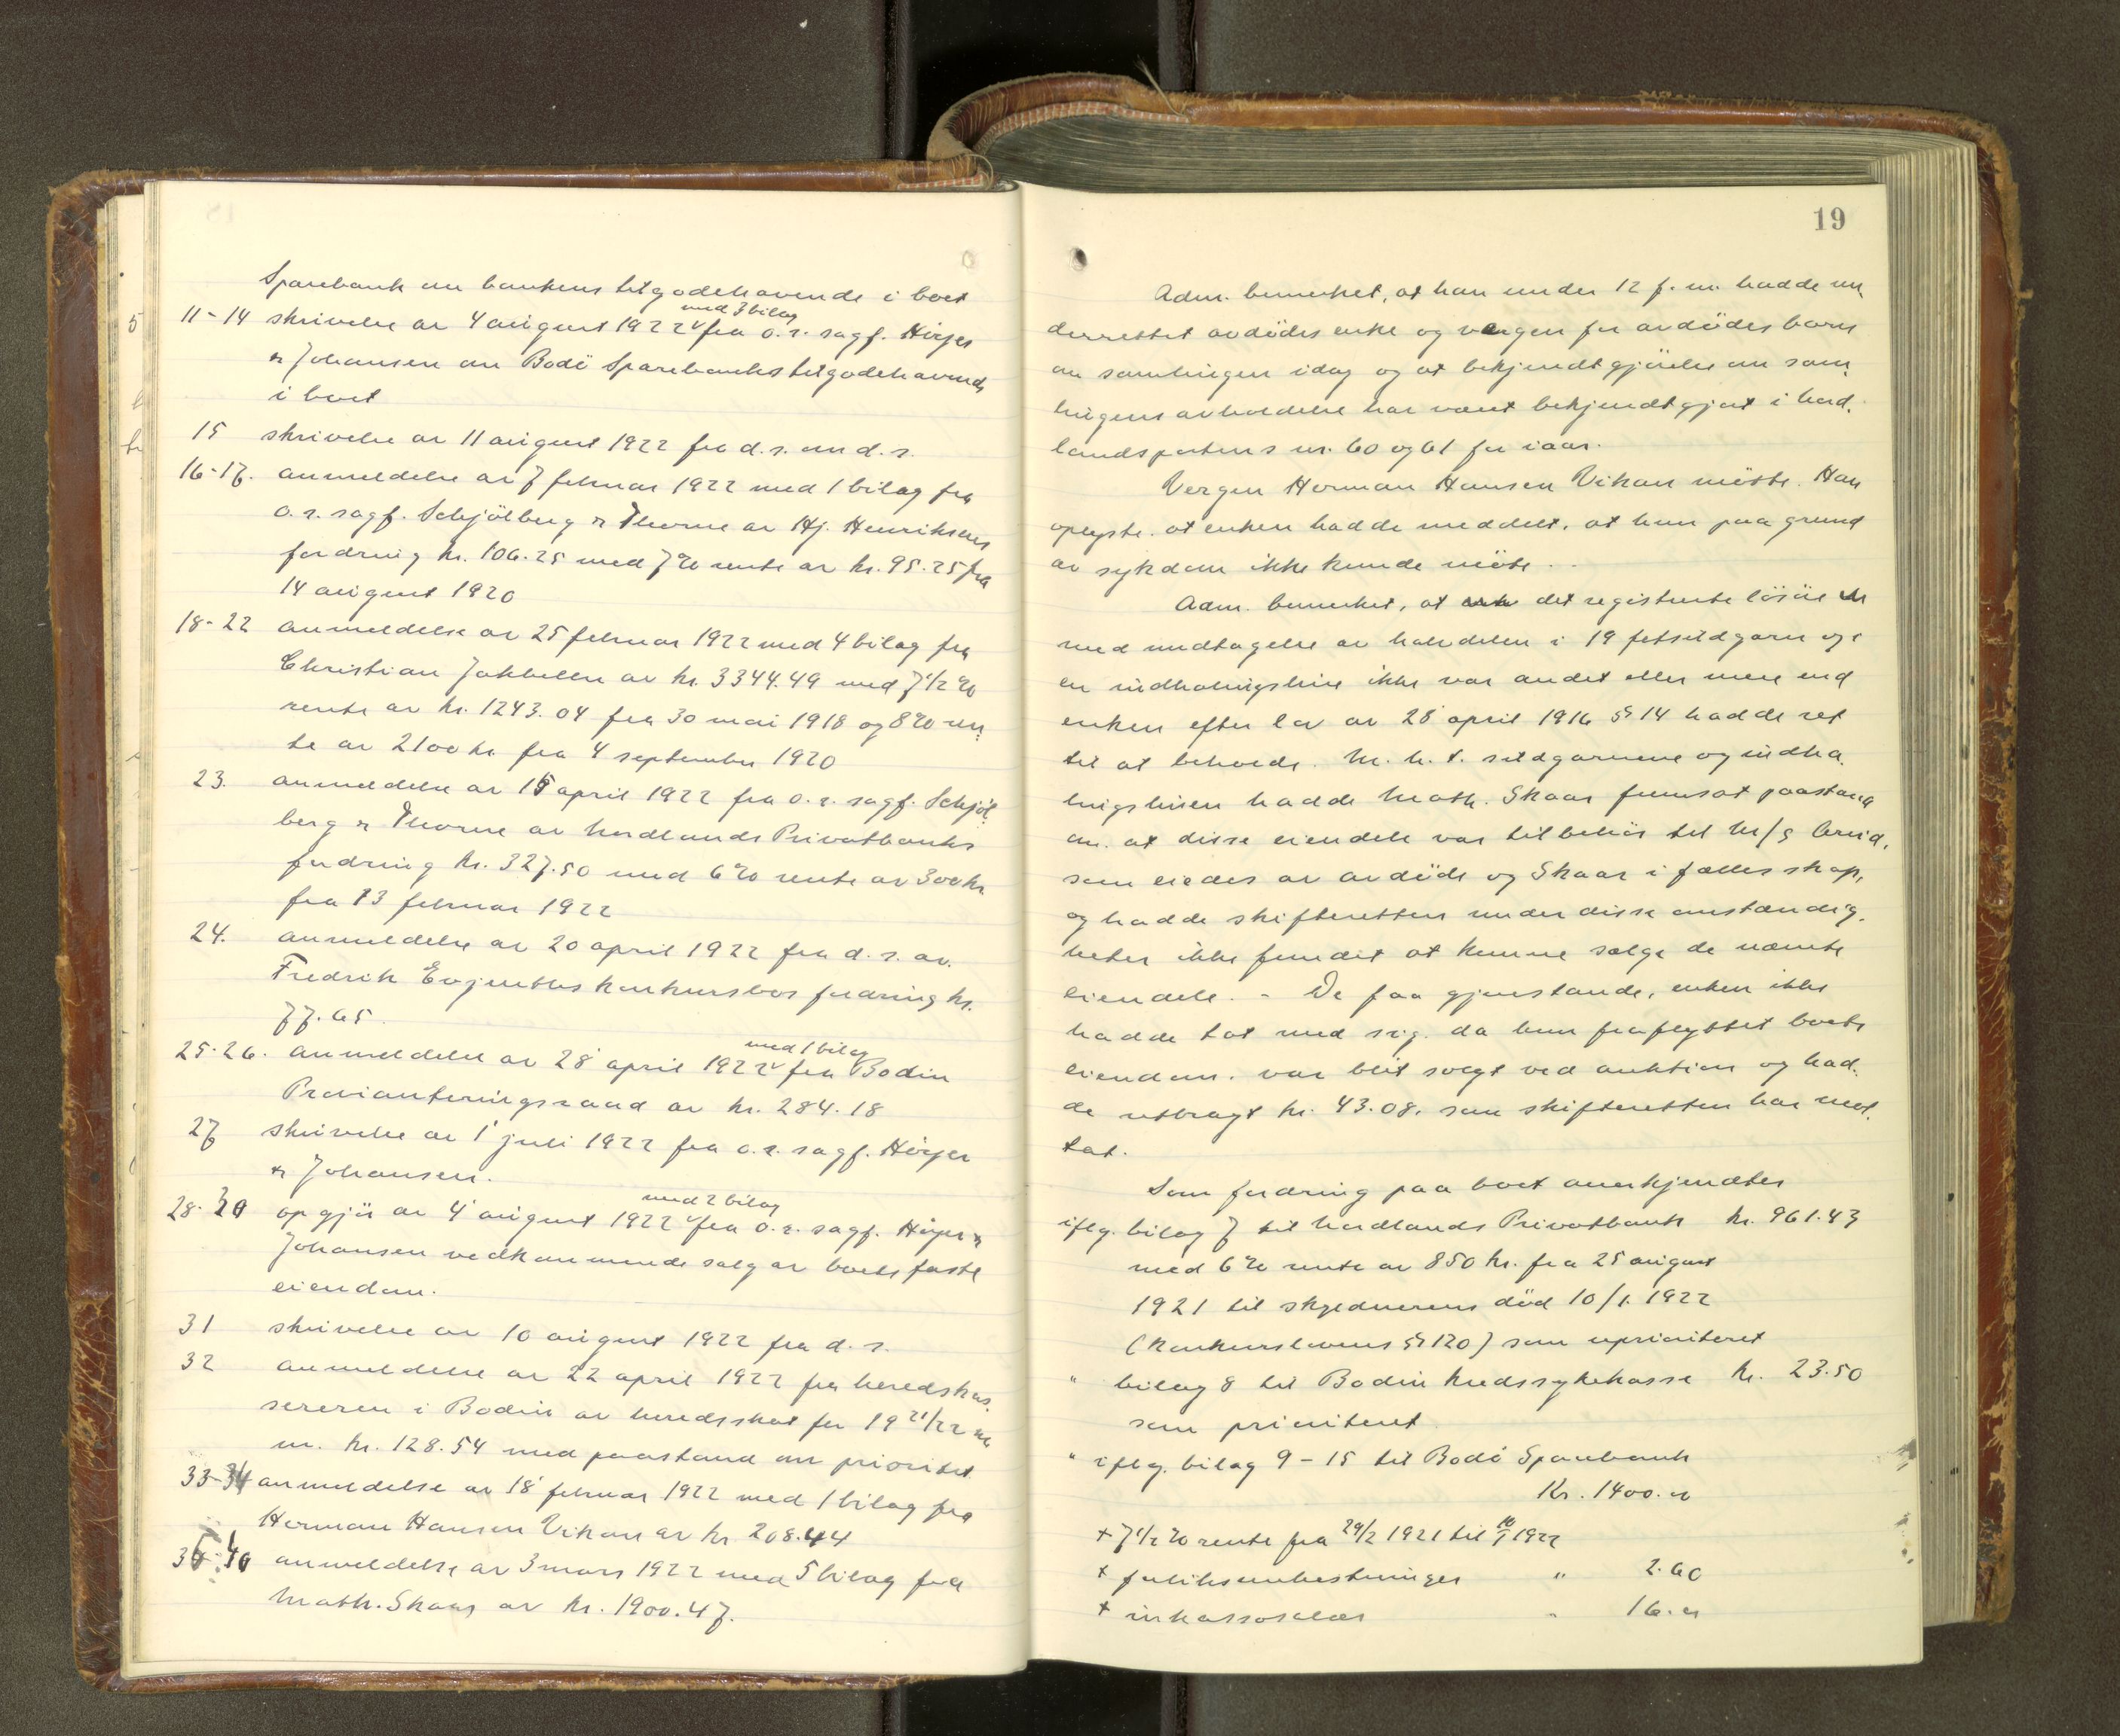 Sparebank om bankens tilgodehavende i boet
11-14 skrivelse av 4 august 1922 med 3 bilag fra o.r. sagf. Höyer
& Johansen om Bodö Sparebanks tilgodehavende
i boet
15 skrivelse av 11 august 1922 fra d.s. om d.s.
16-17. anmeldelse av 7 februar 1922 med 1 bilag fra
o.r. sagf. Schjölberg & Thorne av Hj. Henriksens
fordring kr. 106.25 med 7% rente av kr. 95.25 fra
14 august 1920
18-22 anmeldelse av 25 februar 1922 med 4 bilag fra
Christian Jakhelln av kr. 3344.49 med 7 1/2 %
rente av kr. 1243.04 fra 30 mai 1918 og 8% ren-
te av 2100 kr fra 4 september 1920
23. anmeldelse av 15 april 1922 fra o.r. sagf. Schjöl-
berg & Thorne av Nordlands Privatbanks
fordring kr. 327.50 med 6% rente av 300 kr
fra 13 februar 1922
24. anmeldelse av 20 april 1922 fra d.s. av
Fredrik Evjenths konkursbos fordring kr.
77.65.
25-26. anmeldelse av 28 april 1922 med 1 bilag fra Bodin
Provianteringsraad av kr. 284.18
27 skrivelse av 1 juli 1922 fra o.r. sagf. Höyer
& Johansen.
28-30 opgjör av 4 august 1922 med 2 bilag fra o.r. sagf. Höyer &
Johansen vedkommende salg av boets faste
eiendom.
31 skrivelse av 10 august 1922 fra d.s.
32 anmeldelse av 22 april 1922 fra heredskas-
sereren i Bodin av heredsskat for 19 21/22 m.
m. kr. 128.54 med paastand om prioritet
33-34 anmeldelse av 18 februar 1922 med 1 bilag fra
Herman Hansen Vikan av kr. 208.44
35-40 anmeldelse av 3 mars 1922 med 5 bilag fra
Math. Skaar av kr. 1900.47.
19
Adm. bemerket, at han under 12 f.m. hadde un-
derrettet avdödes enke og vergen for avdödes barn
om samlingen idag og at bekjendtgjörelse om sam-
lingens avholdelse har været bekjendtgjort i Nord-
landsposten s nr. 60 og 61 for iaar.
Vergen Herman Hansen Vikan mötte. Han
oplyste, at enken hadde meddelt, at hun paa grund
av sykdom ikke kunde möte.
Adm. bemerket, at det registrerte lösöre
med undtagelse av halvdelen i 19 fetsildgarn og i
en indhalingsline ikke var andet eller mere end
enken efter lov av 28 april 1916 § 14 hadde ret
til at beholde. M.h.t. sildgarnene og indha-
lingslinen hadde Math. Skaar fremsat paastand
om, at disse eiendele var tilbehör til m/s Arvid,
som eiedes av avdöde og Skaar i fællesskap,
og hadde skifteretten under disse omstændig-
heter ikke fundet at kunne sælge de nævnte
eiendele. - De faa gjenstande, enken ikke
hadde tat med sig, da hun fraflyttet boets
eiendom, var blit solgt ved auktion og had-
de utbragt kr. 43.08, som skifteretten har mot-
tat.
Som fordring paa boet anerkjendtes
iflg. bilag 7 til Nordlands Privatbank kr. 961.43
med 6% rente av 850 kr. fra 25 august
1921 til skyldnerens död 10/1. 1922
(Konkurslovens § 120) som uprioriteret
" bilag 8 til Bodin kredssykekasse kr. 23.50
som prioritert
" iflg. bilag 9-15 til Bodö Sparebank
Kr. 1400.00
+ 7 1/2 % rente fra 29/2 1921 til 10/1 1922
+ " 2.60
+ inkassosalær " 16.00